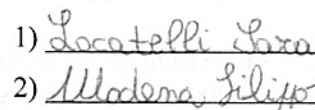 1) Locatelli Sara
2) Modena Filippo